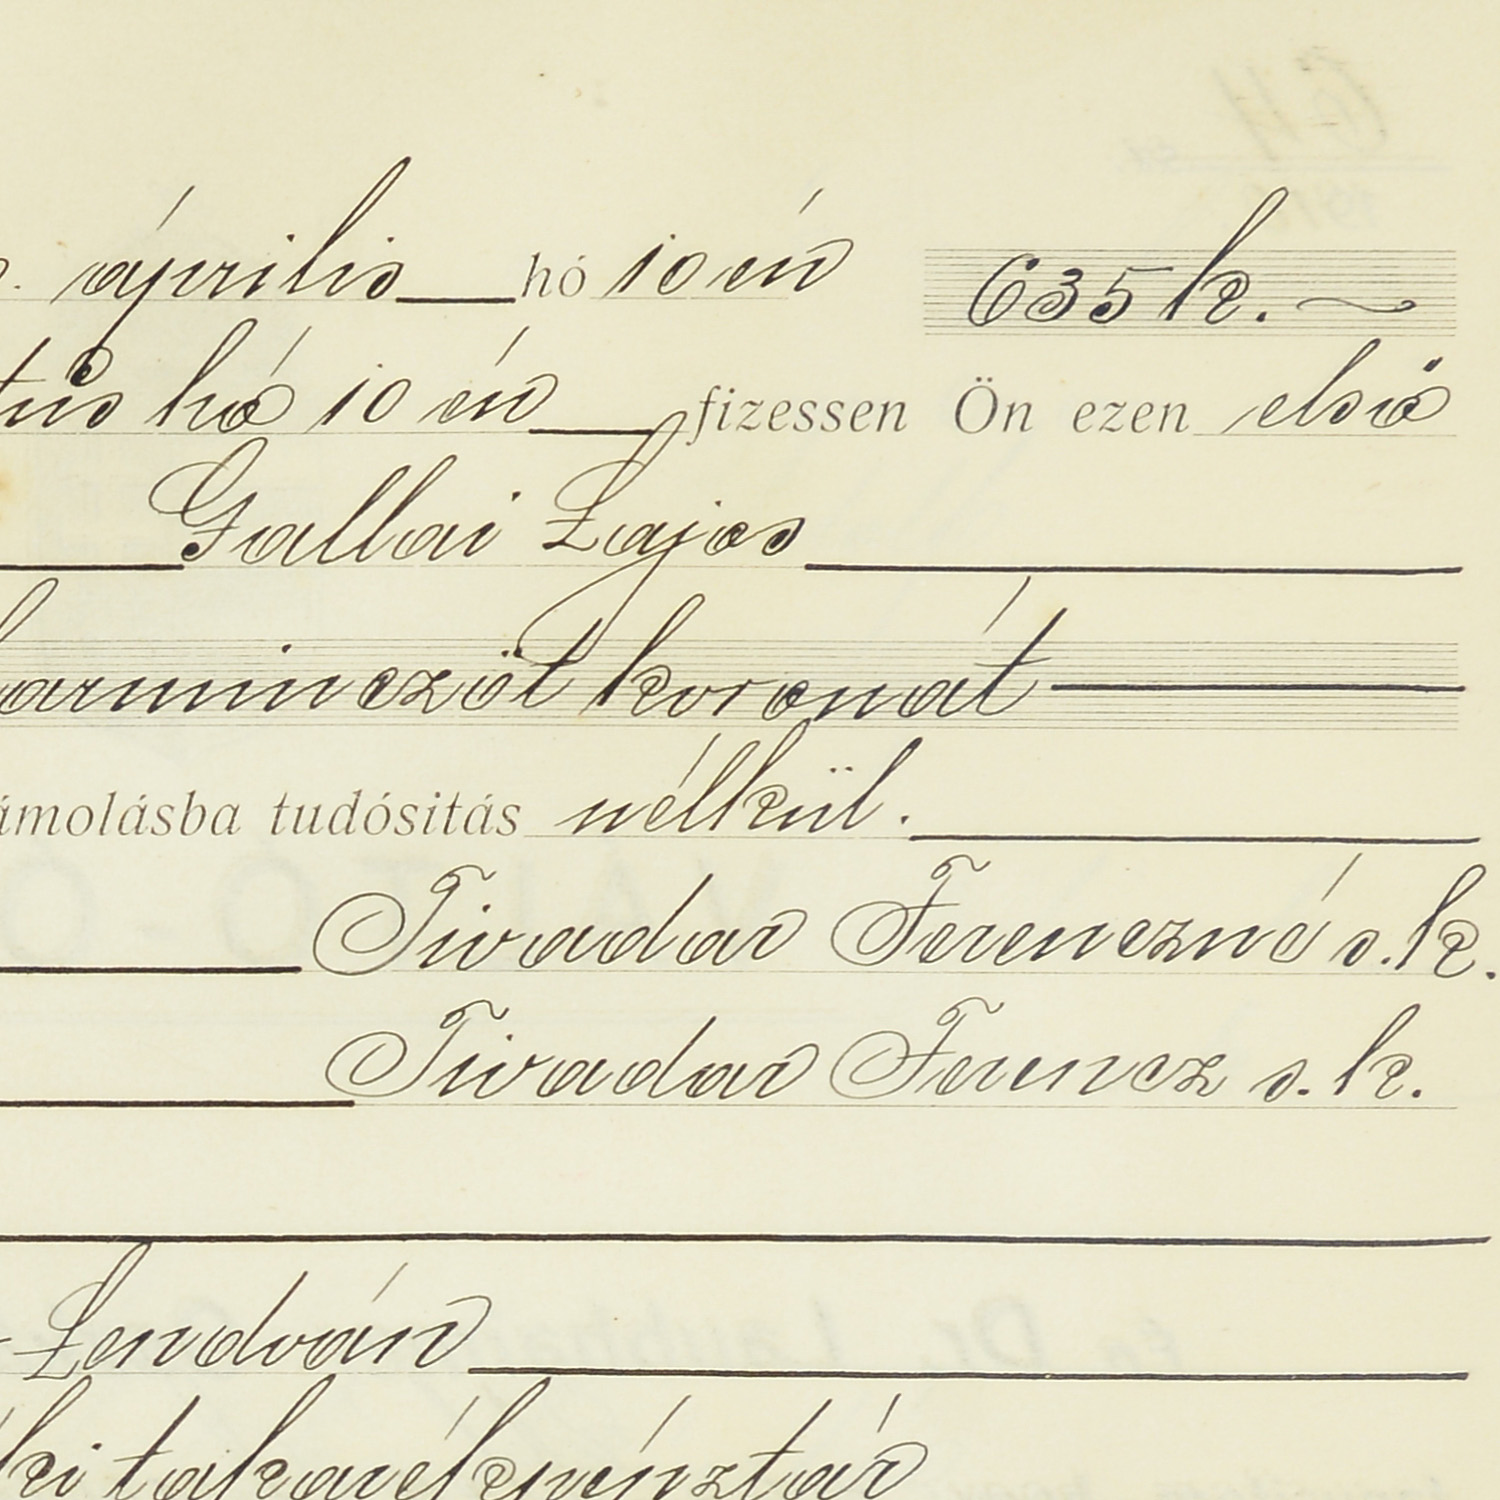 április hó 10 én 635 k.
hó 10 én fizessen Ön ezen első
Gallai Lajos
harminczöt koronát
ámolásba tudósitás nélkül.
Tivadar Ferenczné s. k.
Tivadar Ferencz s. k.
Lendván
takarékpénztár